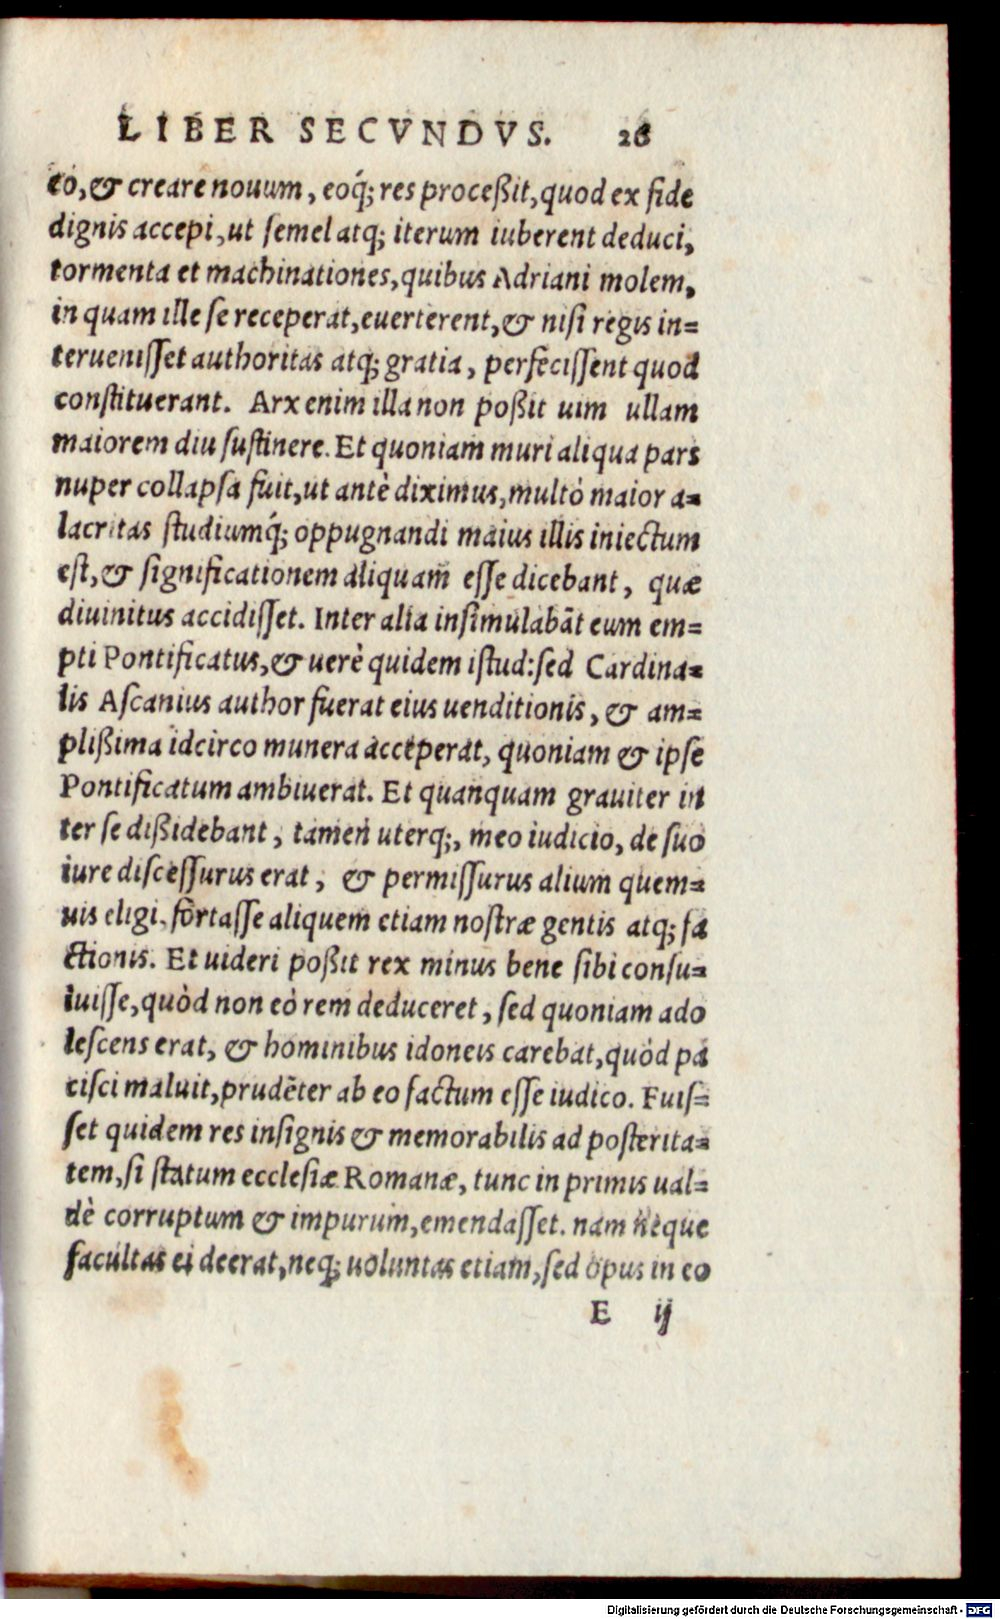 LIBER SECVNDVS. 28
eò, & creare nouum, eoq́; res proceßit, quod ex fide
dignis accepi, ut semel atq; iterum iuberent deduci,
tormenta et machinationes, quibus Adriani molem,
in quam ille se receperat, euerterent, & nisi regis in=
teruenisset authoritas atq; gratia, perfecissent quod
constituerant. Arx enim illa non poßit uim ullam
maiorem diu sustinere. Et quoniam muri aliqua pars
nuper collapsa fuit, ut antè diximus, multò maior a=
lacritas studiumq́; oppugnandi maius illis iniectum
est, & significationem aliquam esse dicebant, quæ
diuinitus accidisset. Inter alia insimulabãt eum em=
pti Pontificatus, & uerè quidem istud: sed Cardina=
lis Ascanius author fuerat eius uenditionis, & am=
plißima idcirco munera acceperat, quoniam & ipse
Pontificatum ambiuerat. Et quanquam grauiter in
ter se dißidebant, tamen uterq;, meo iudicio, de suo
iure discessurus erat, & permissurus alium quem=
uis eligi, fortasse aliquem etiam nostræ gentis atq; fa
ctionis. Et uideri poßit rex minus bene sibi consu=
luisse, quòd non eò rem deduceret, sed quoniam ado
lescens erat, & hominibus idoneis carebat, quòd pa
cisci maluit, prudẽter ab eo factum esse iudico. Fuis=
set quidem res insignis & memorabilis ad posterita=
tem, si statum ecclesiæ Romanæ, tunc in primis ual=
dè corruptum & impurum, emendasset. nam neque
facultas ei deerat, neq; uoluntas etiam, sed opus in eo
E ij
Digitalisierung gefördert durch die Deutsche Forschungsgemeinschaft - DFG